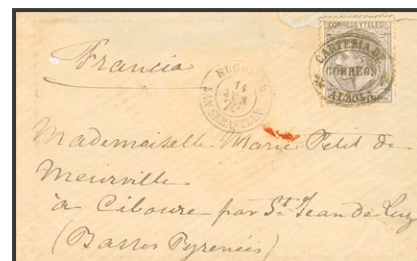 CORREOS Y TELEG
CARTERIA DE
CORREOS
Francia
14
JUN
SAN SEBASTIAN
Mademoiselle Marie Petit de
Meurville
à Ciboure par St Jean de Luz
(Basses Pyrenées)